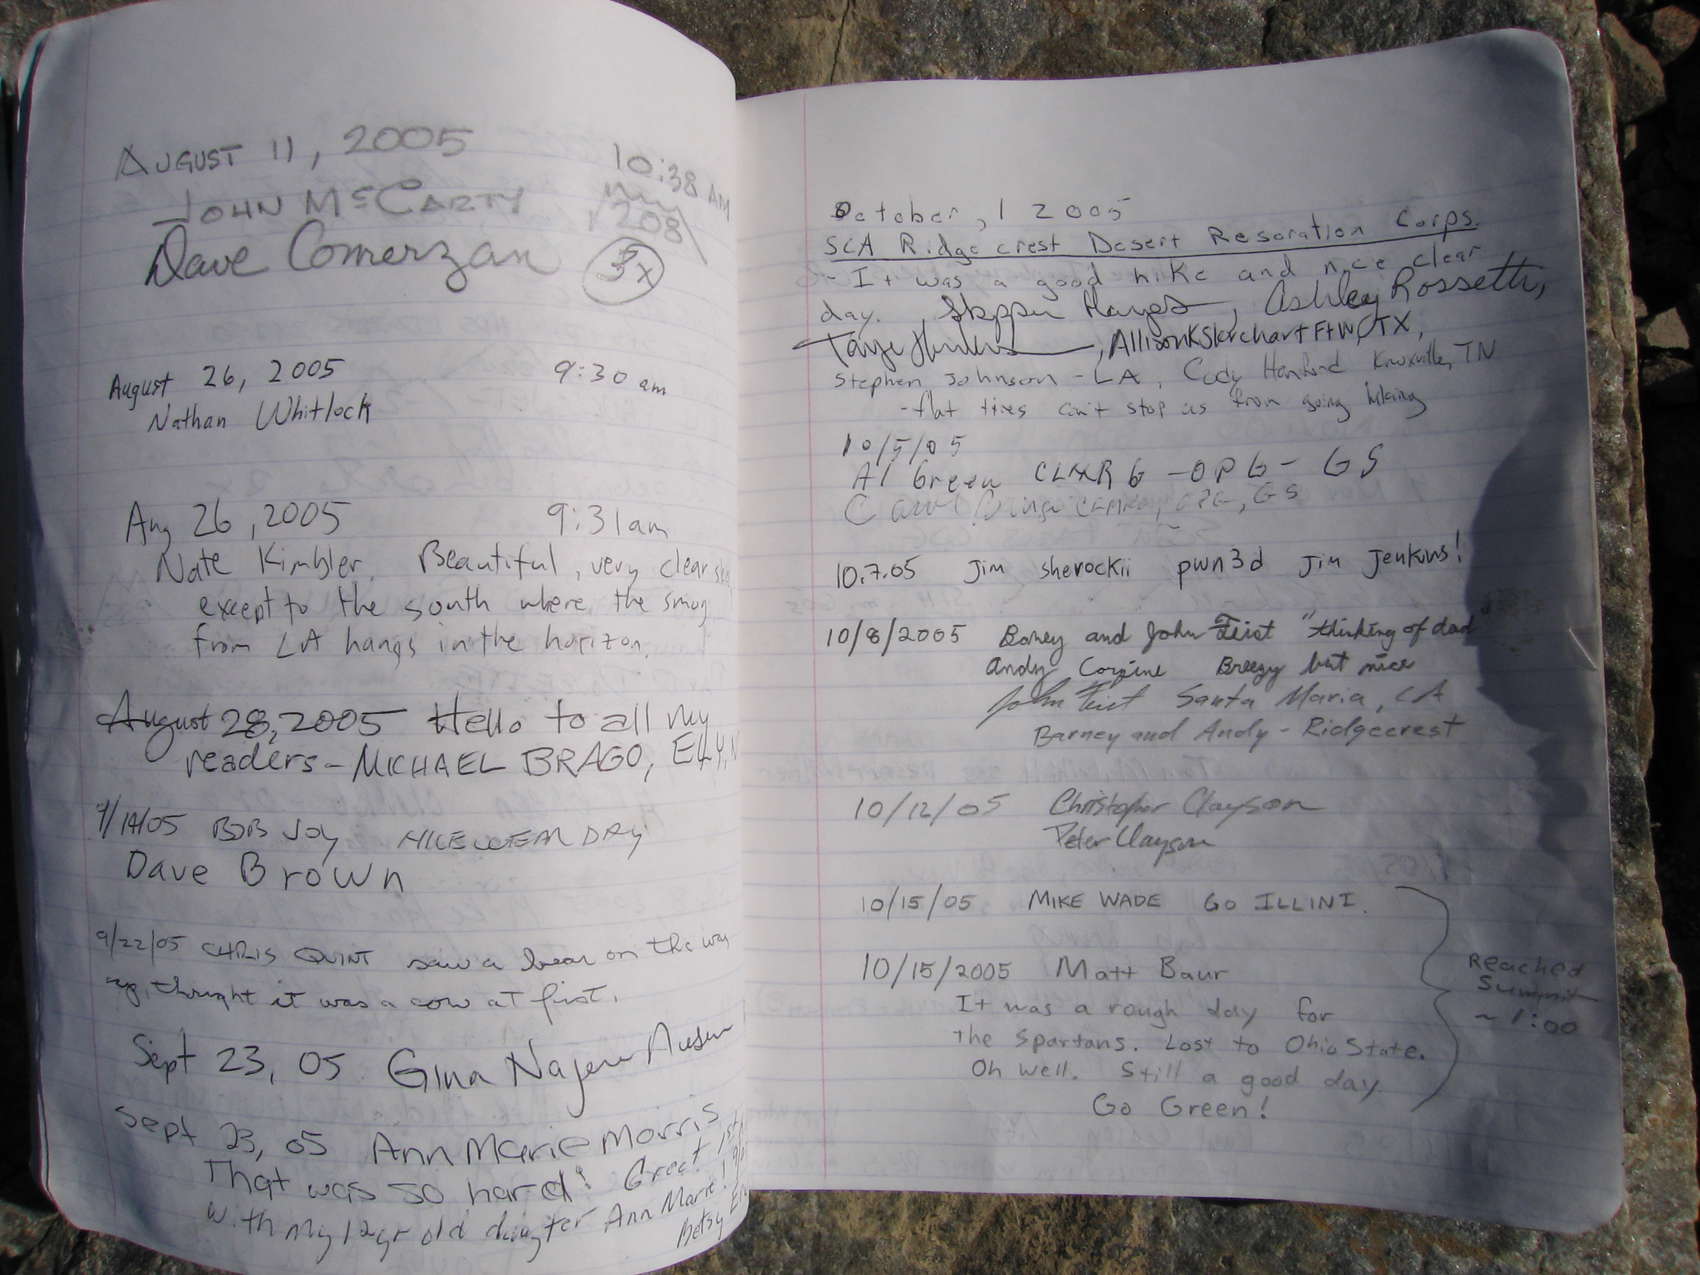 AUGUST 11, 2005 10:38 AM
JOHN McCARTY 1208
Dave Comerzan 3x
August 26, 2005 9:30 am
Nathan Whitlock
Aug 26, 2005 9:31am
Nate Kimbler. Beautiful, very clear
except to the south where the smog
from LA hangs in the horizon.
August 28, 2005 Hello to all my
readers - MICHAEL BRAGO,
9/14/05 BOB JOY NICE DAY
Dave Brown
9/22/05 CHRIS QUINT saw a bear on the way
up, thought it was a cow at first.
Sept 23, 05 Gina
Sept 23, 05 Ann Marie Morris
That was so hard! Great 1st
with my 12 yr old daughter Ann Marie!
Betsy
October, 1 2005
SCA Ridgecrest Desert Resoration Corps.
- It was a good hike and nice clear
day. Hayes, Ashley Rossetti,
, Allison K FtW, TX,
Stephen Johnson - LA, Cody Hanford Knoxville, TN
- flat tires can't stop us from going hiking
10/5/05
Al Green CLMRG - OPG - GS
GS
10.7.05 Jim sherockii pwn3d Jim Jenkins!
10/8/2005 Barney and John Feist "thinking of dad"
Andy Corzine Breezy but nice
John Feist Santa Maria, CA
Barney and Andy - Ridgecrest
10/12/05 Christopher Clayson
Peter Clayson
10/15/05 MIKE WADE GO ILLINI.
10/15/2005 Matt Baur
It was a rough day for
the Spartans. Lost to Ohio State.
Oh well. Still a good day
Go Green!
Reached
Summit
~ 1:00